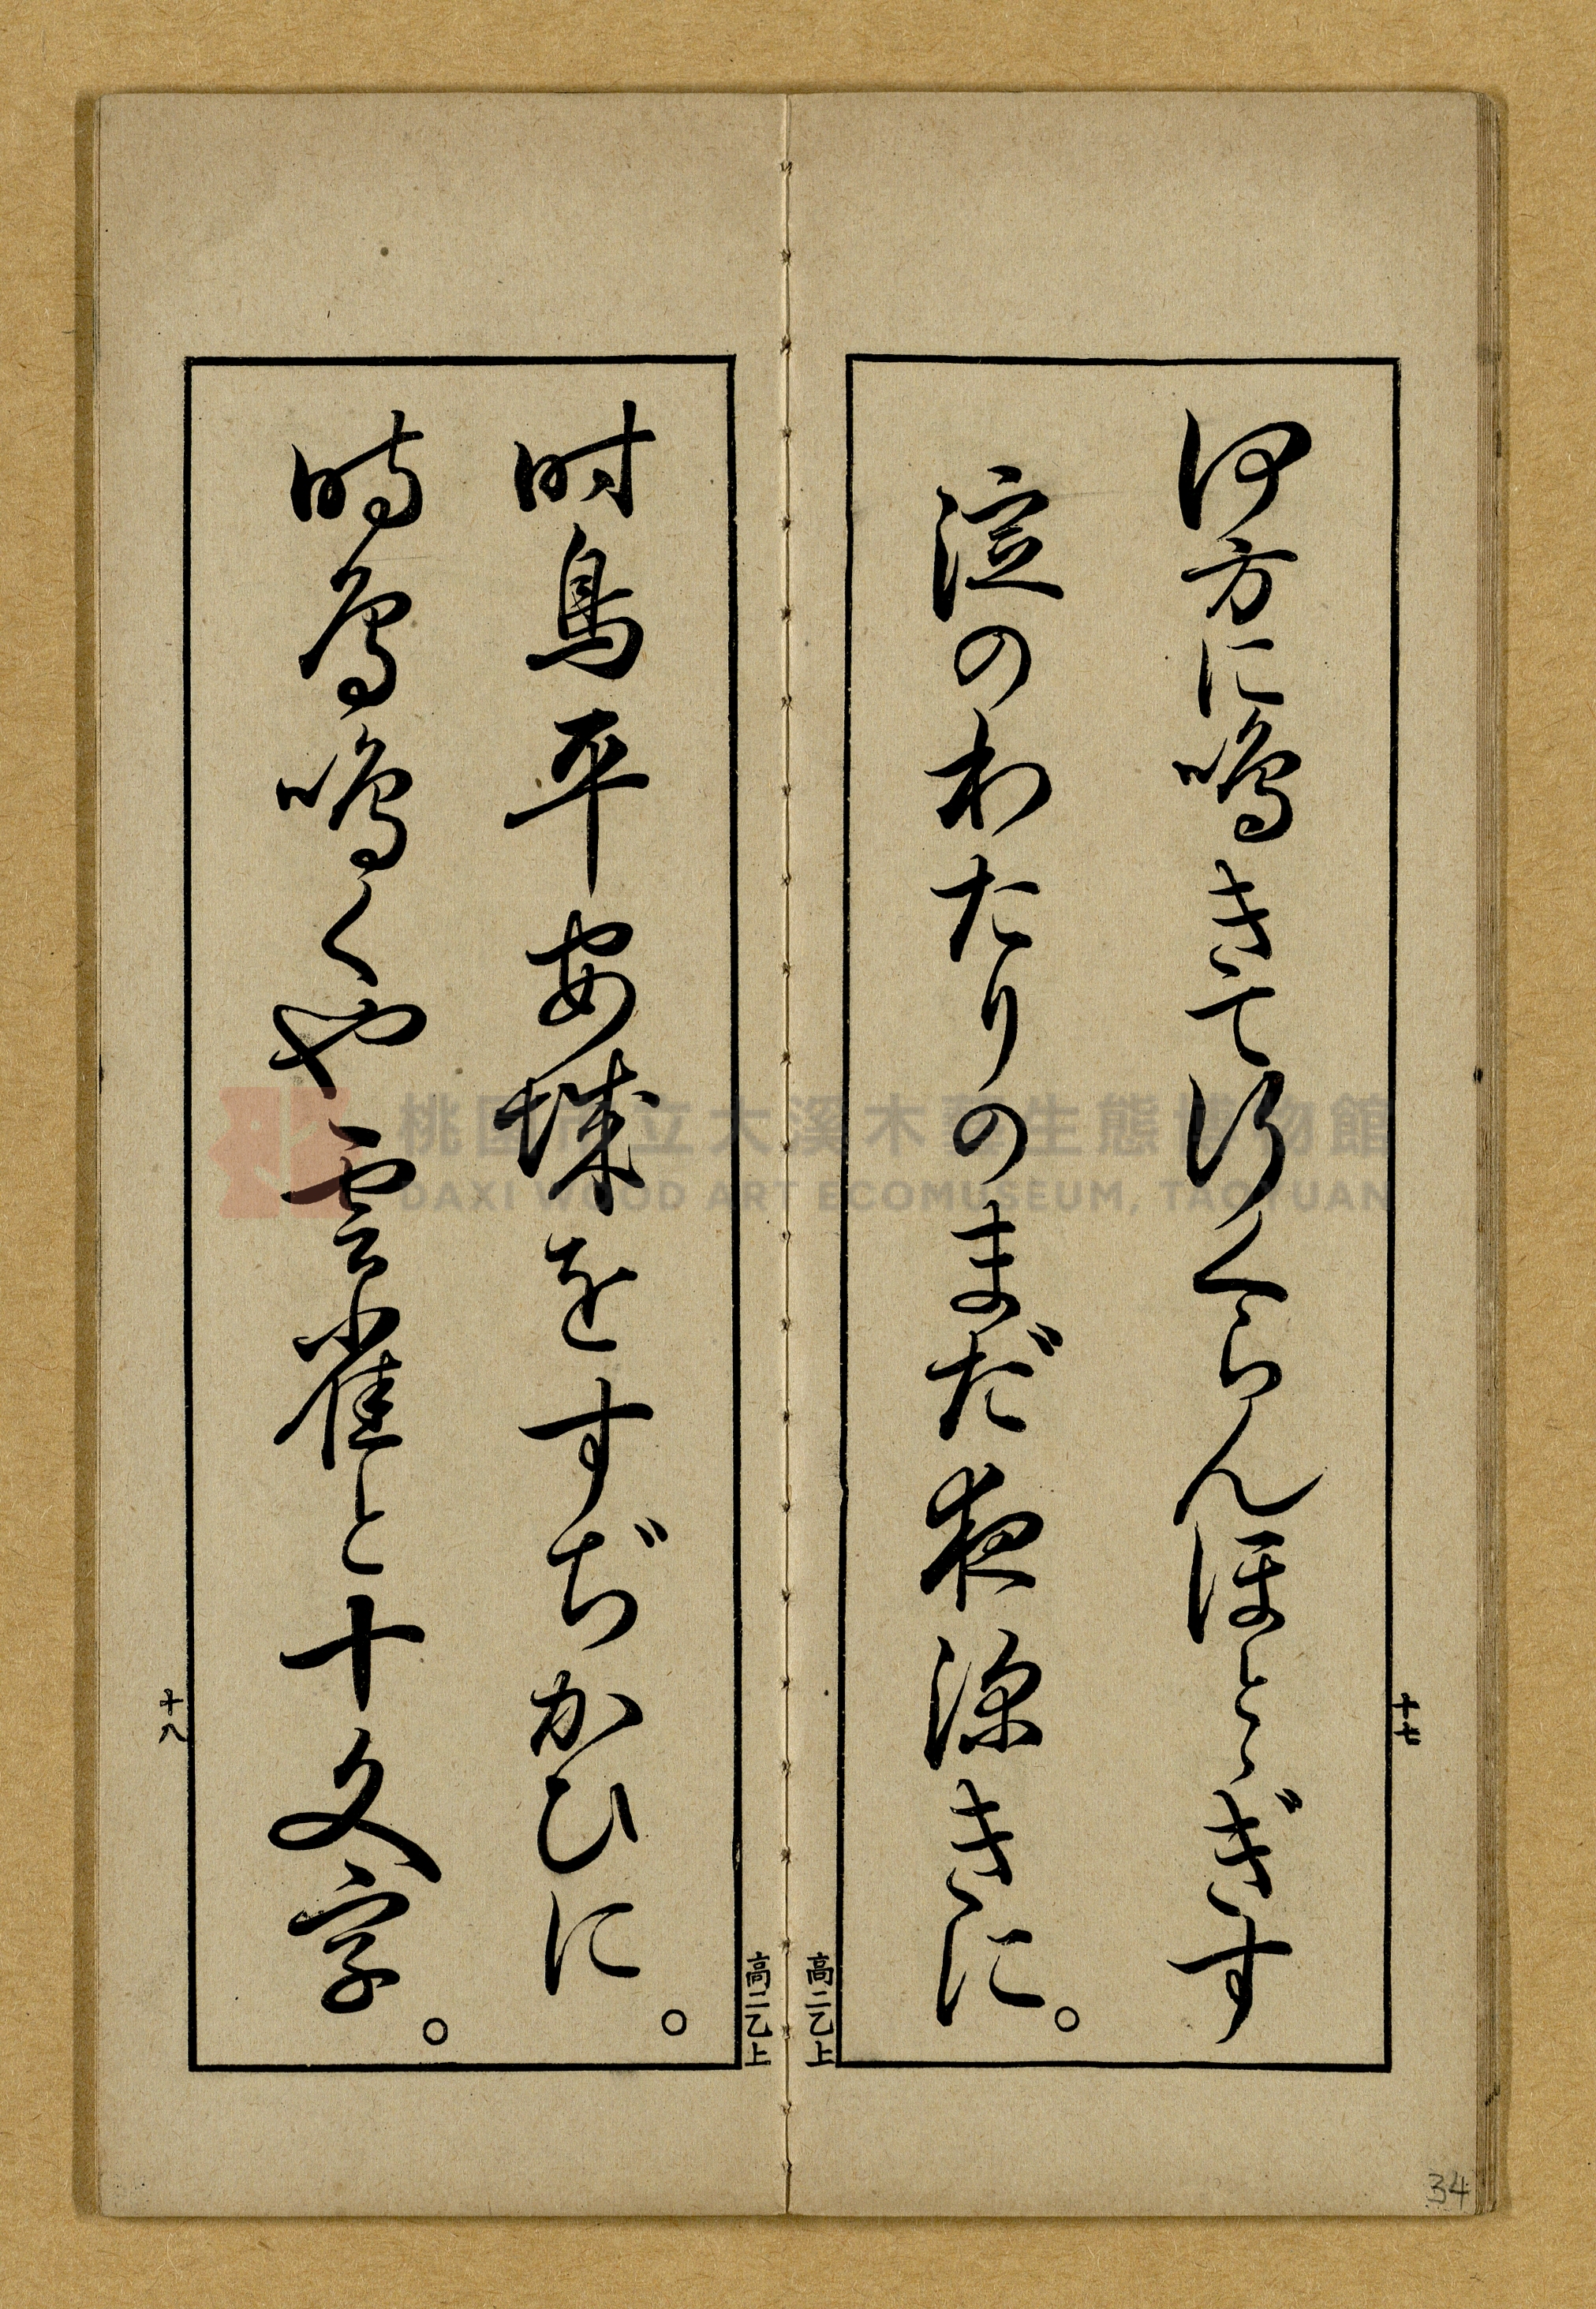 何方に鳴きて行くらんほとゝぎす
淀のわたりのまだ夜深きに。
十七
高二乙上
時鳥平安城をすぢかひに。
時鳥鳴くや雲雀と十文字。
高二乙上
十八
桃園市立大溪木藝生態博物館
DAXI WOOD ART ECOMUSEUM, TAOYUAN
34